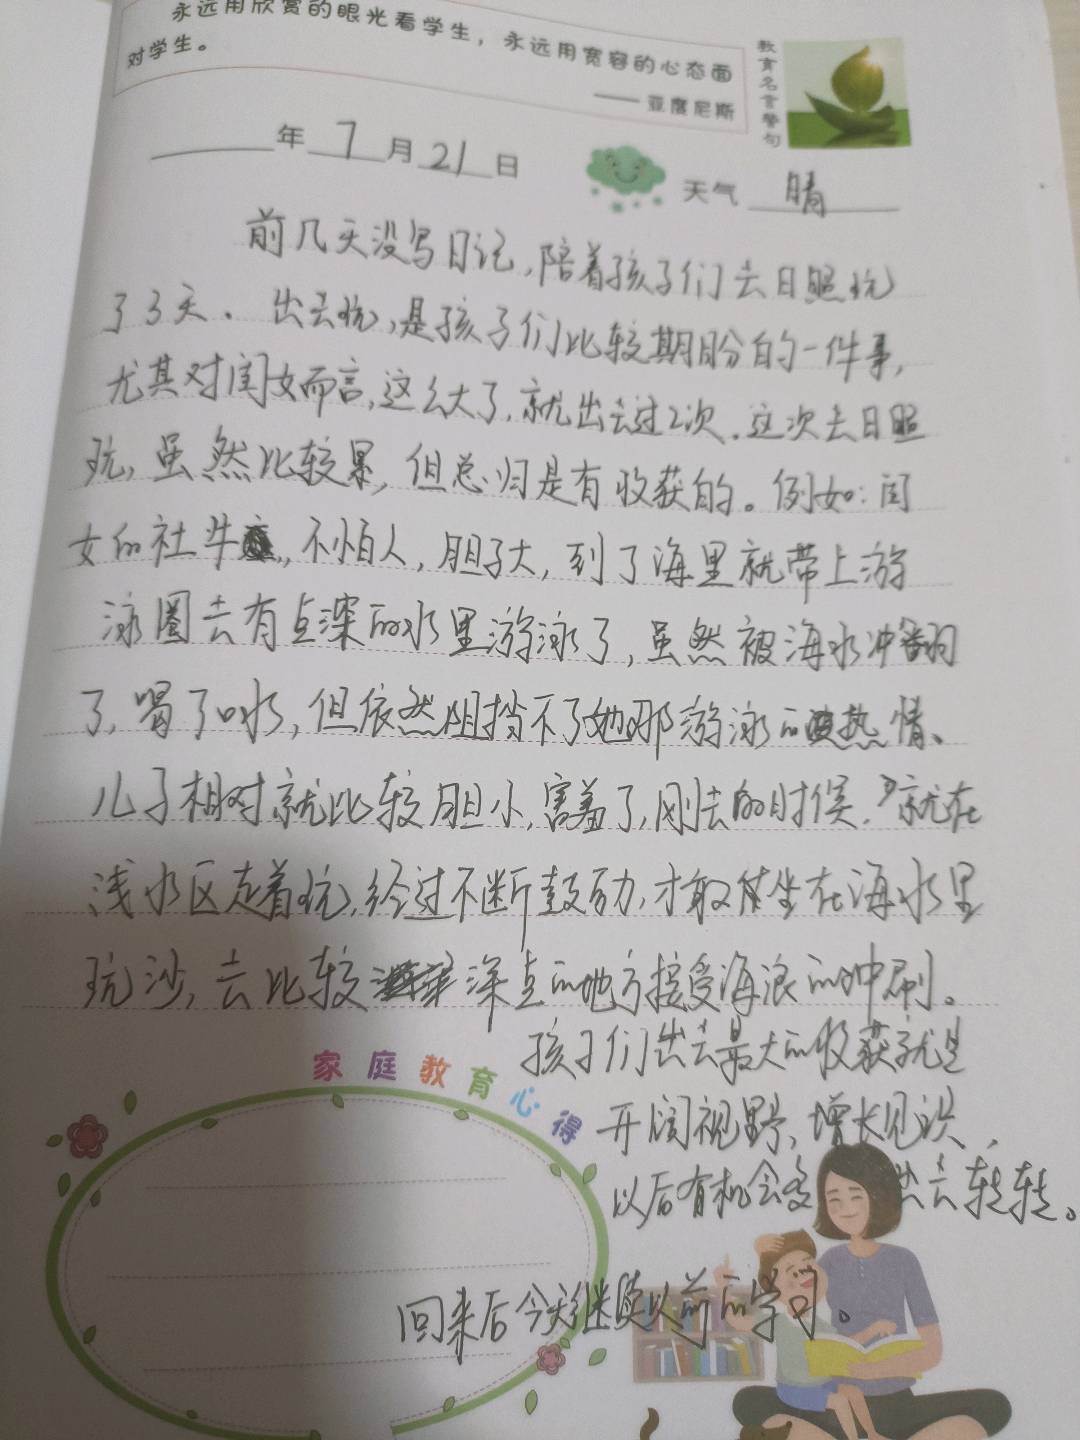 永远用欣赏的眼光看学生，永远用宽容的心态面
对学生。
——亚度尼斯
教育名言警句
年 7 月 21 日
天气 晴
前几天没写日记，陪着孩子们去日照玩
了3天。出去玩，是孩子们比较期盼的一件事，
尤其对闺女而言，这么大了，就出去过2次。这次去日照
玩，虽然比较累，但总归是有收获的。例如：闺
女的社牛，不怕人，胆子大，到了海里就带上游
泳圈去有点深的水里游泳了，虽然被海水冲翻
了，喝了口水，但依然阻挡不了她那游泳的热情、
儿子相对就比较胆小，害羞了，刚去的时候，就在
浅水区走着玩，经过不断鼓励，才敢坐在海水里
玩沙，去比较深点的地方接受海浪的冲刷。
孩子们出去最大的收获就是
开阔视野，增长见识，
以后有机会多出去转转。
家庭教育心得
回来后今天继续以前的学习。